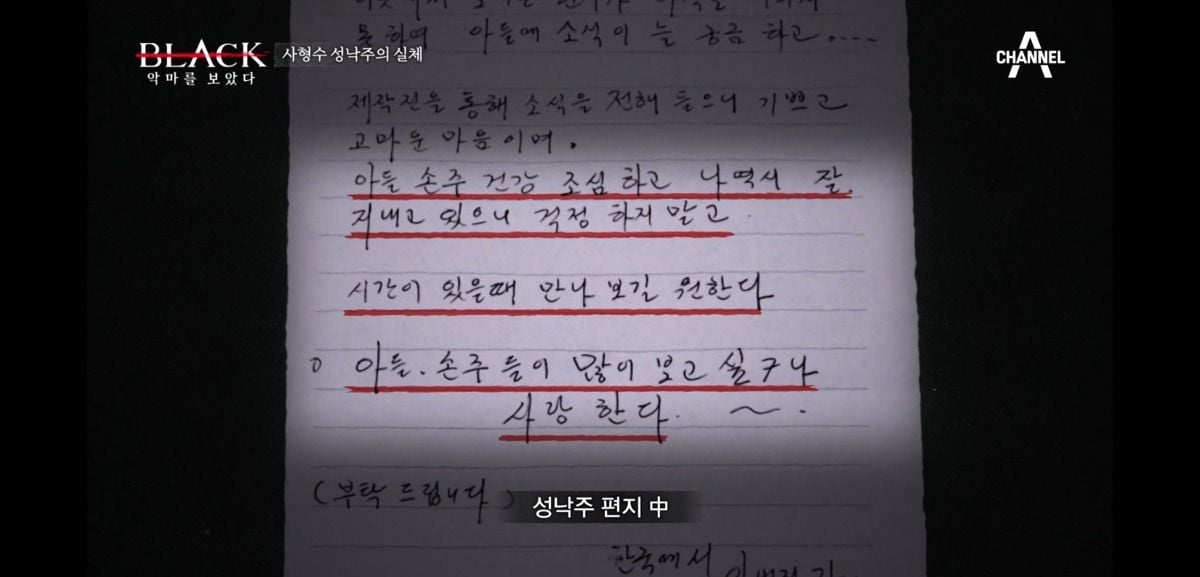 BLACK
악마를 보았다
사형수 성낙주의 실체
CHANNEL A
못하며 아들에 소식이 늘 궁금 하고....
제작진을 통해 소식을 전해 들으니 기쁘고
고마운 마음이며.
아들 손주 건강 조심 하고 나역시 잘.
지내고 있으니 걱정 하지 말고
시간이 있을때 만나 보길 원한다
아들. 손주 들이 많이 보고 싶구나
사랑 한다. ~ .
(부탁 드립니다)
성낙주 편지 中
한국에서